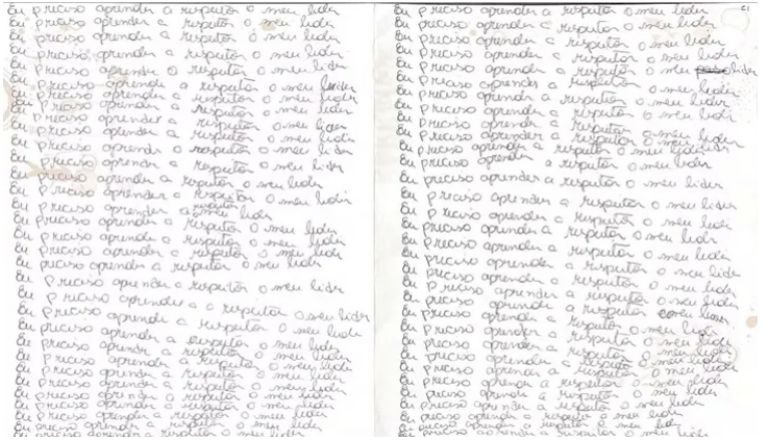 Eu preciso aprender a respeitar o meu lider
Eu preciso aprender a respeitar o meu lider
Eu preciso aprender a respeitar o meu lider
Eu preciso aprender a respeitar o meu lider
Eu preciso aprender o respeitar o meu lider
Eu preciso aprender a respeitar o meu lider
Eu preciso aprender a respeitar o meu lider
Eu preciso aprender a respeitar o meu lider
Eu preciso aprender a respeitar o meu lider
Eu preciso aprender a respeitar o meu lider
Eu preciso aprender o respeitar o meu lider
Eu preciso aprender a respeitar o meu lider
Eu preciso aprender a respeitar o meu lider
Eu preciso aprender a respeitar o meu lider
Eu preciso aprender a respeitar o meu lider
Eu preciso aprender a respeitar o meu lider
Eu preciso aprender a respeitar o meu lider
Eu preciso aprender a respeitar o meu lider
Eu preciso aprender a respeitar o meu lider
Eu preciso aprender o respeitar o meu lider
Eu preciso aprender a o respeitar o meu lider
Eu preciso aprender a respeitar o meu lider
Eu preciso aprender a respeitar o meu lider
Eu preciso aprender a respeitar o meu lider
Eu preciso aprender a respeitar o meu lider
Eu preciso aprender a respeitar o meu lider
Eu preciso aprender a respeitar o meu lider
Eu preciso aprender a respeitar o meu lider
Eu preciso aprender a respeitar o meu lider
Eu preciso aprender a respeitar o meu lider
Eu preciso aprender a respeitar o meu lider
Eu preciso aprender a respeitar o meu lider
Eu preciso aprender a respeitar o meu lider
Eu preciso aprender a respeitar o meu lider
Eu preciso aprender a respeitar o meu lider
Eu preciso aprender a respeitar o meu lider
Eu preciso aprender a respeitar o meu lider
Eu preciso aprender a respeitar o meu lider
Eu preciso aprender a respeitar o meu lider
Eu preciso aprender a respeitar o meu lider
Eu preciso aprender a respeitar o meu lider
Eu preciso aprender a respeitar o meu lider
Eu preciso aprender a respeitar o meu lider
Eu preciso aprender a respeitar o meu lider
Eu preciso aprender a respeitar o meu lider
Eu preciso aprender a respeitar o meu lider
Eu preciso aprender a respeitar o meu lider
Eu preciso aprender a respeitar o meu lider
Eu preciso aprender a respeitar o meu lider
Eu preciso aprender a respeitar o meu lider
Eu preciso aprender a respeitar o meu lider
Eu preciso aprender a respeitar o meu lider
Eu preciso aprender a respeitar o meu lider
Eu preciso aprender a respeitar o meu lider
Eu preciso aprender a respeitar o meu lider
Eu preciso aprender a respeitar o meu lider
Eu preciso aprender a respeitar o meu lider
Eu preciso aprender a respeitar o meu lider
Eu preciso aprender a respeitar o meu lider
Eu preciso aprender a respeitar o meu lider
Eu preciso aprender a respeitar o meu lider